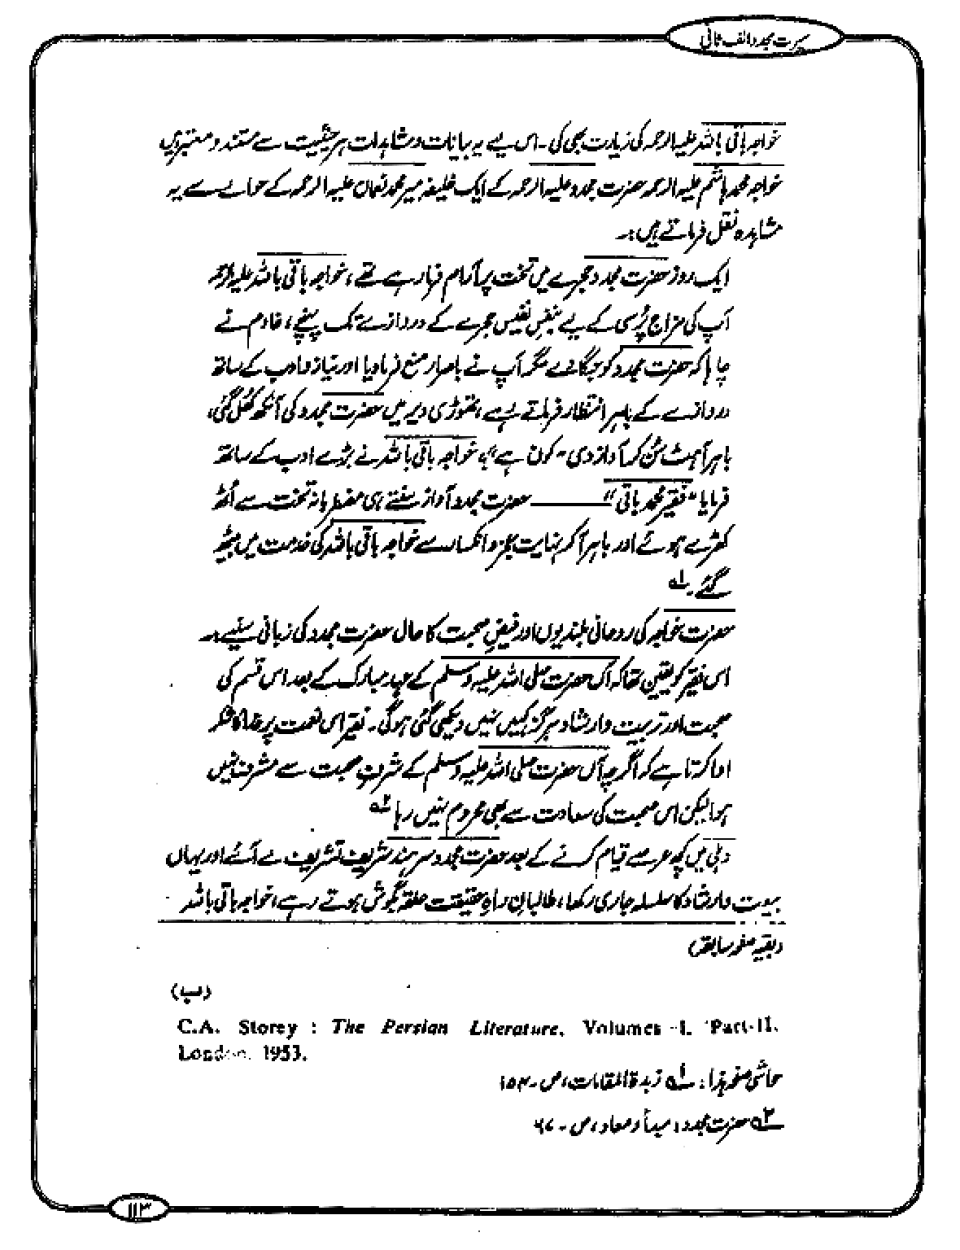 سیرت مجدد الف ثانی
خواجہ باقی باللہ علیہ الرحمہ کی زیارت بھی کی۔ اس لیے یہ بیانات و مشاہدات ہر حیثیت سے مستند و معتبر ہیں
خواجہ محمد ہاشم علیہ الرحمہ حضرت مجدد علیہ الرحمہ کے ایک خلیفہ میر محمد نعمان علیہ الرحمہ کے حوالے سے یہ
مشاہدہ نقل فرماتے ہیں:۔
ایک روز حضرت مجدد حجرے میں تخت پر آرام فرما رہے تھے، خواجہ باقی باللہ علیہ الرحمہ
آپ کی مزاج پُرسی کے لیے بنفسِ نفیس حجرے کے دروازے تک پہنچے، خادم نے
چاہا کہ حضرت مجدد کو جگا دے مگر آپ نے باصرار منع فرما دیا اور نیاز و ادب کے ساتھ
دروازے کے باہر انتظار فرماتے رہے، تھوڑی دیر میں حضرت مجدد کی آنکھ کُھل گئی،
باہر آہٹ سُن کر آواز دی۔ کون ہے؟، خواجہ باقی باللہ نے بڑے ادب کے ساتھ
فرمایا "فقیر محمد باقی" ——— حضرت مجدد آواز سنتے ہی مضطربانہ تخت سے اُٹھ
کھڑے ہوئے اور باہر آ کر نہایت عجز و انکسار سے خواجہ باقی باللہ کی خدمت میں بیٹھ
گئے۔ ۱؎
حضرت خواجہ کی روحانی بلندیوں اور فیضِ صحبت کا حال حضرت مجدد کی زبانی سنیے:۔
اس فقیر کو یقین تھا کہ آں حضرت صلی اللہ علیہ وسلم کے عہد مبارک کے بعد اس قسم کی
صحبت اور تربیت و ارشاد ہرگز کہیں نہیں دیکھی گئی ہوگی۔ فقیر اس نعمت پر خدا کا شکر
ادا کرتا ہے کہ اگرچہ آں حضرت صلی اللہ علیہ وسلم کے شرفِ صحبت سے مشرف نہیں
ہوا لیکن اس صحبت کی سعادت سے بھی محروم نہیں رہا ۲؎
دہلی میں کچھ عرصے قیام کرنے کے بعد حضرت مجدد سرہند شریف تشریف لے آئے اور یہاں
بیعت و ارشاد کا سلسلہ جاری رکھا، طالبانِ راہِ حقیقت حلقہ بگوش ہوتے رہے، خواجہ باقی باللہ
(بقیہ صفحہ سابقہ)
(ب)
C.A. Storey : The Persian Literature, Volumes -I, Part-II,
London, 1953.
حاشی صفحہ ہذا: ۱؎ زبدۃ المقامات، ص۔ ۱۵۳
۲؎ حضرت مجدد: مبدأ و معاد، ص۔ ۶۷
۱۱۳